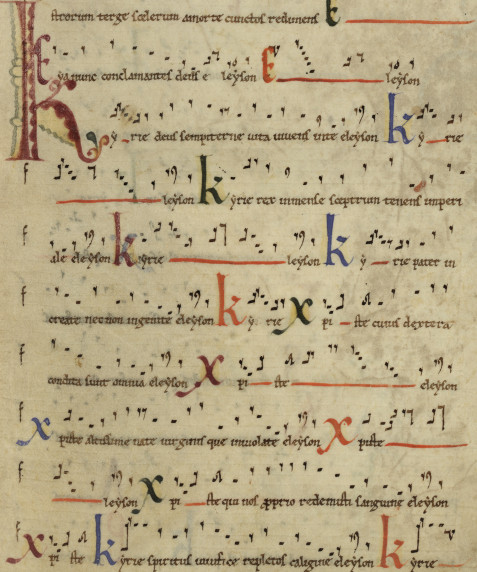 strorum terge scelerum amorte cunctos redimens k
Eya nunc conclamantes deus e leyson E leyson
Ky rie deus sempiterne vita vivens in te eleyson ky rie
leyson kyrie rex inmense sceptrum tenens imperi
ale eleyson kyrie leyson ky rie pater in
create nec non ingenite eleyson ky rie xpi ste cuius dextera
condita sunt omnia eleyson xpi ste eleyson
xpiste altissime nate virginis que inviolate eleyson xpiste
leyson xpi ste qui nos pprio redemisti sanguine eleyson
xpi ste kyrie spiritus vivifice repletos caligine eleyson kyrie